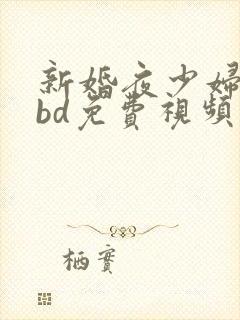 新婚夜少婦
bd免費視頻
栖實